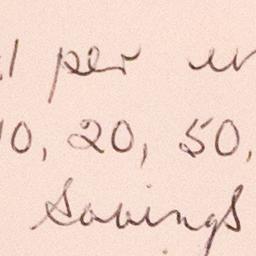 per
10, 20, 50,
Savings